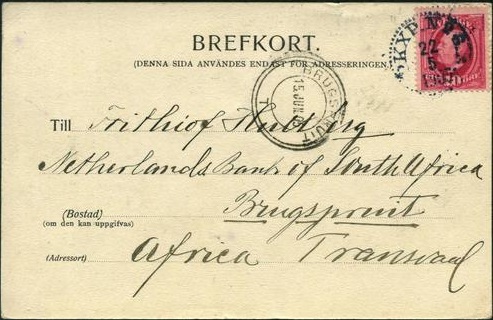 BREFKORT.
(DENNA SIDA ANVÄNDES ENDAST FÖR ADRESSERINGEN.)
PKXP N
22
5
BRUGSPRUIT
15 JUN 03
Till Frithiof Hultberg
Netherlands Bank of South Africa
(Bostad) Brugspruit
(om den kan uppgifvas)
(Adressort) Africa Transvaal